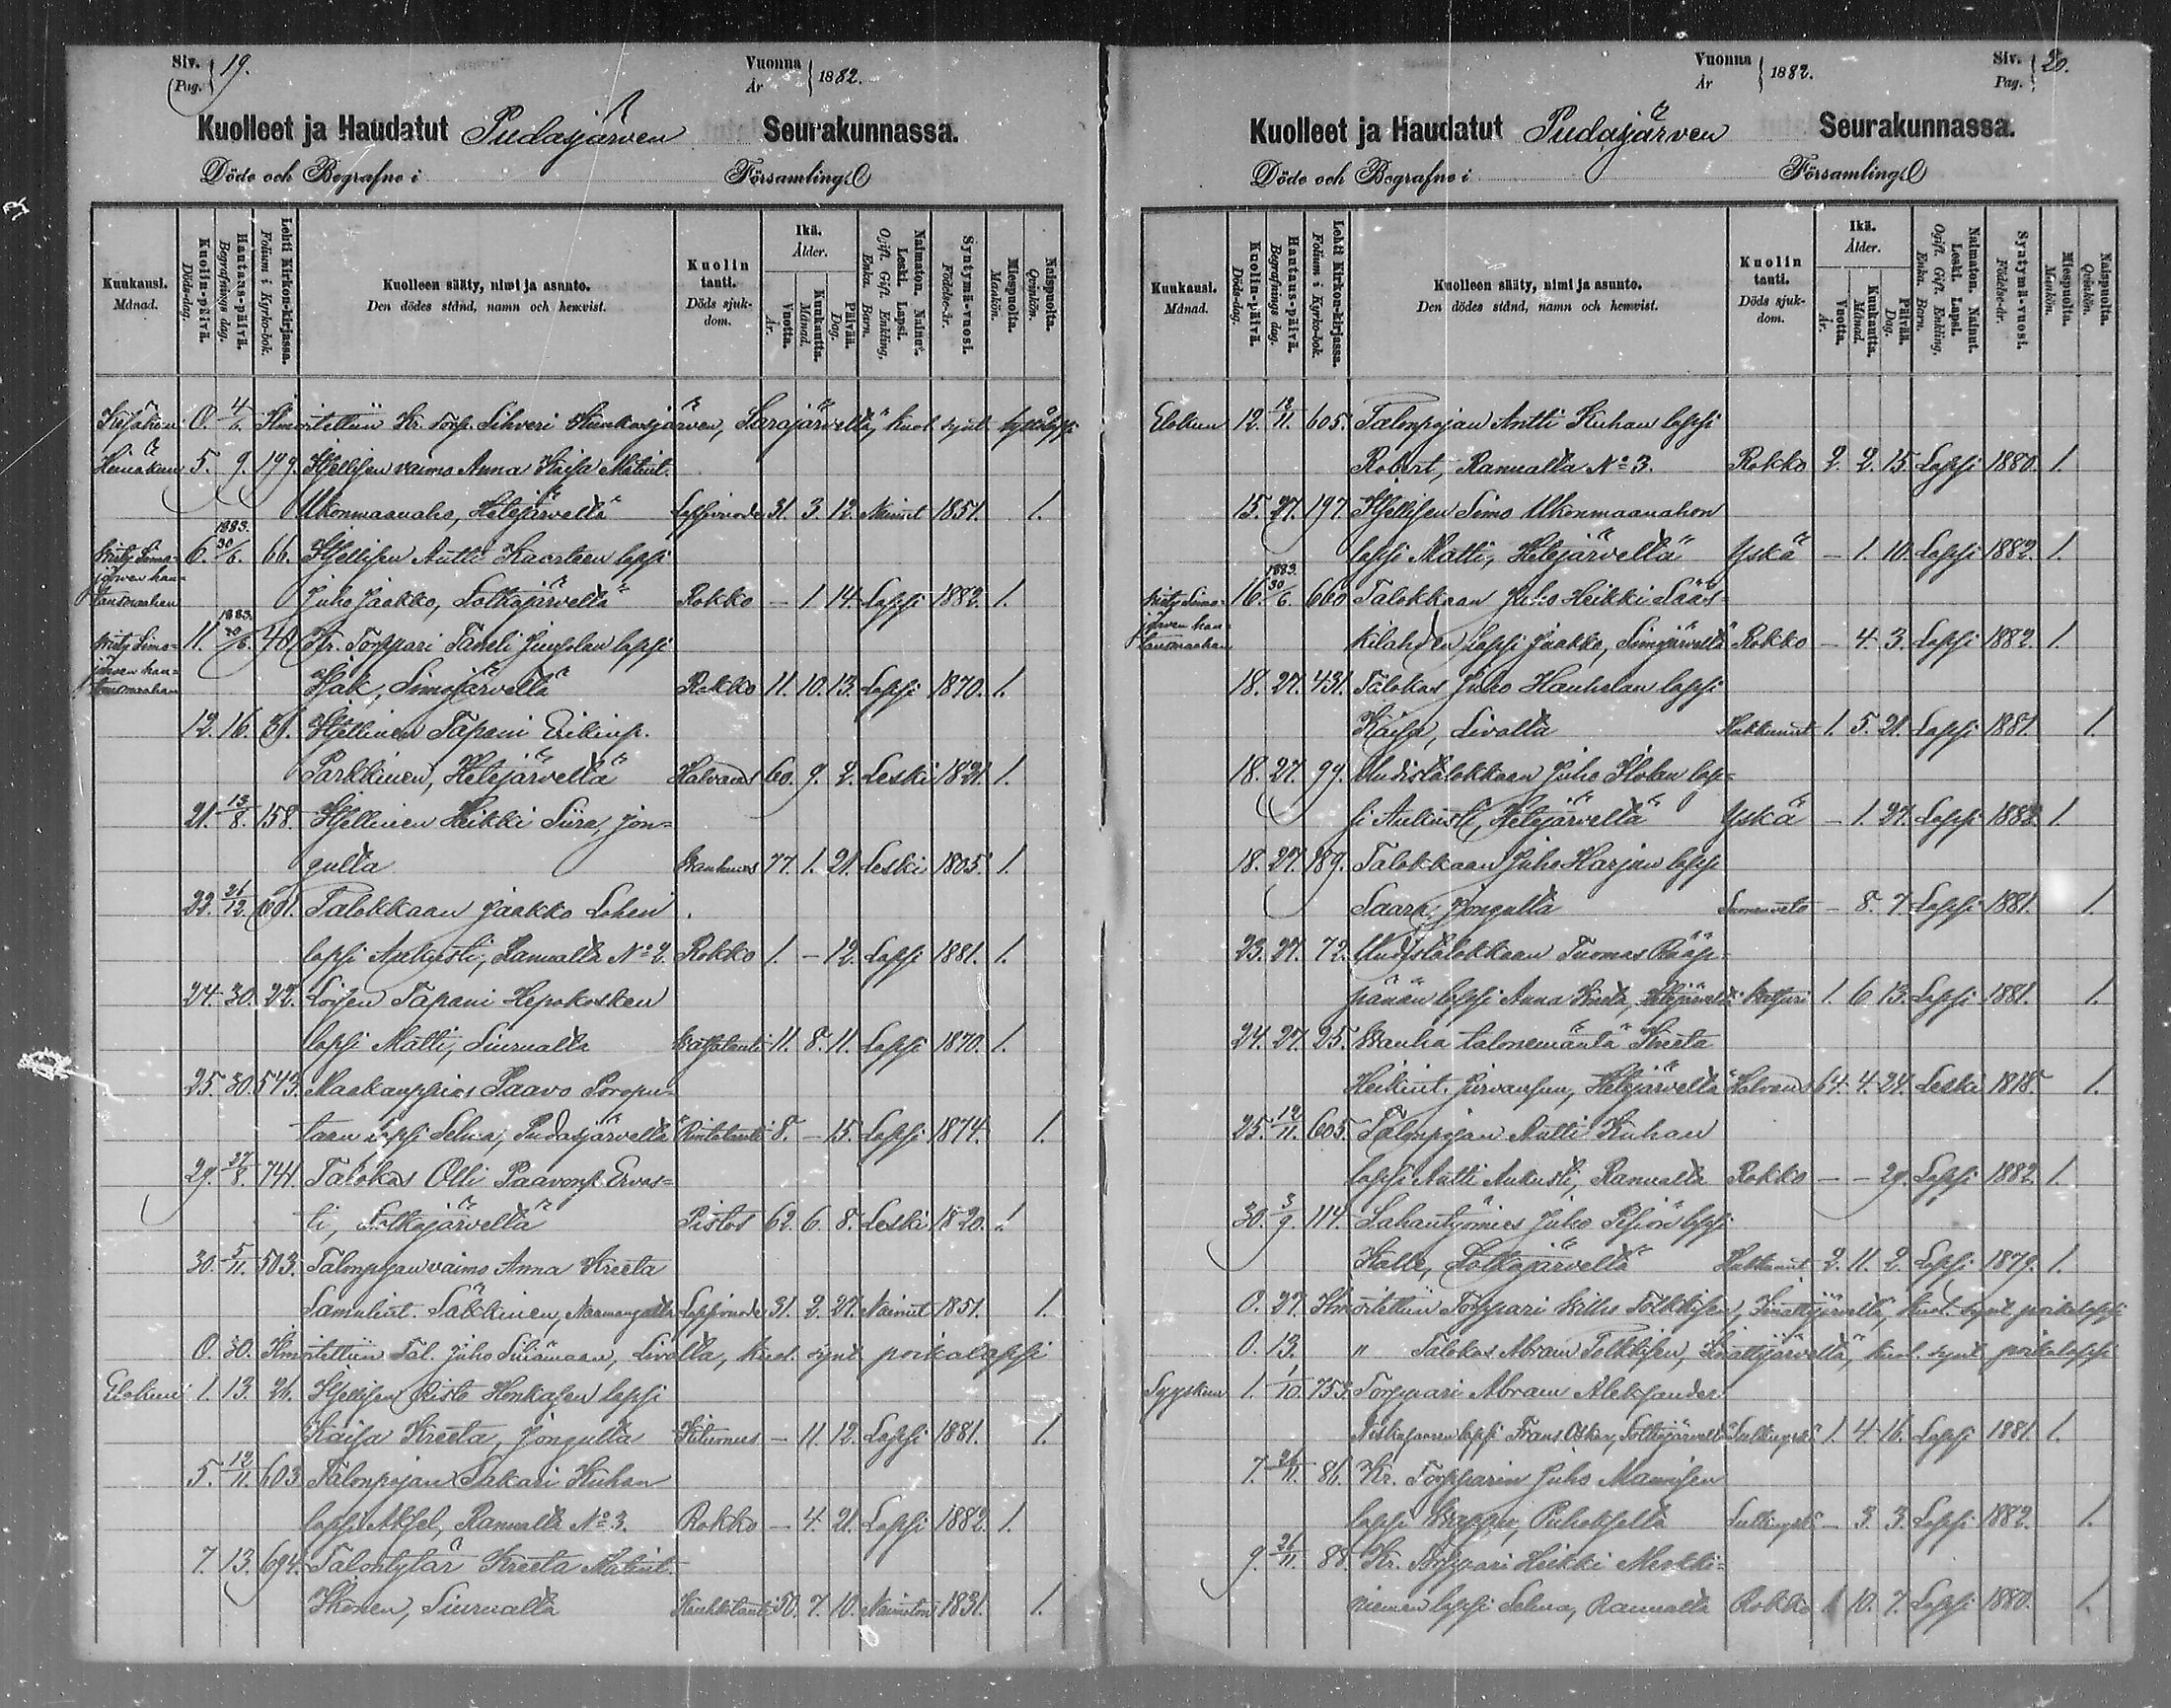 Siv. Pag. 19. Vuonna År 1882.
Kuolleet ja Haudatut Pudasjärven Seurakunnassa.
Döde och Begrafne i Församling.
Kuukausi. Månad. Kuolin-päivä. Döds-dag. Hautaus-päivä. Begrafnings dag. Lehti Kirkon-kirjassa. Folium i Kyrko-bok. Kuolleen sääty, nimi ja asunto. Den dödes stånd, namn och hemvist. Kuolin tauti. Döds sjukdom. Ikä. Ålder. Vuotta. År. Kuukautta. Månad. Päivää. Dag. Naimaton. Nainut. Leski. Lapsi. Ogift. Gift. Enkling. Enka. Barn. Syntymä-vuosi. Födelse-år. Miespuolta. Mankön. Naispuolta. Qvinkön.
Kesäkuu 0. 4/6. Ilmoitettiin Kr. Torp. Sihveri Sarajärveltä, kuol. synt. tyttölapsi
Heinäkuu 5. 9. 199. Itsellisen vaimo Anna Kaisa Matint.
Ukonmaanaho, Hetejärveltä Lapsivuode 31. 3. 12. Nainut 1851. 1.
6. 1883. 30/6. 66. Itsellisen Antti Kaarteen lapsi
Juho Jaakko, Sotkajärveltä Rokko – 1. 14. Lapsi 1882. 1.
11. 1883. 30/6. Kr. Torppari Taneli lapsi
Isak, Simojärveltä Rokko 11. 10. 13. Lapsi 1870. 1.
12. 16. 31. Itsellinen Tapani Erikinp.
Parkkinen, Hetejärveltä Halvaus 60. 9. 2. Leski 1821. 1.
21. 13/8. 158. Itsellinen Heikki Siira, Jon-
gulta Wanhuus 77. 1. 21. Leski 1805. 1.
22. 26/12. 601. Talokkaan Jaakko Lohen
lapsi Aukusti, Ranualta No 2. Rokko 1. – 12. Lapsi 1881. 1.
24. 30. 22. Loisen Tapani Hepokosken
lapsi Matti, Siurualta Watsatauti 11. 8. 11. Lapsi 1870. 1.
25. 30. 543. Maakauppias Paavo Soropu-
taan lapsi Selma, Pudasjärveltä Rintatauti 8. – 15. Lapsi 1874. 1.
29. 27/8. 741. Talokas Olli Paavonp. Ervas-
ti, Sotkajärveltä Pistos 62. 6. 8. Leski 1820. 1.
30. 5/11. 503. Talonpojan vaimo Anna Kreeta
Samulint. Säkkinen, Naamangalta Lapsivuode 31. 2. 27. Nainut 1851. 1.
0. 30. Ilmoitettiin Tal. Juho Siliämaan, Livolta, kuol. synt. poikalapsi
Elokuu 1. 13. 26. Itsellisen Risto Honkasen lapsi
Kaisa Kreeta, Jongulta Kitumus – 11. 12. Lapsi 1881. 1.
5. 12/11. 603. Talonpojan Sakari Kuhan
lapsi Aksel, Ranualta No 3. Rokko – 4. 21. Lapsi 1882. 1.
7. 13. 694. Talontytär Kreeta Matint.
Ikonen, Siurualta Keuhkotauti 50. 7. 10. Naimaton 1831. 1.
Vuonna År 1882. Siv. Pag. 20.
Kuolleet ja Haudatut Pudasjärven Seurakunnassa.
Döde och Begrafne i Församling.
Kuukausi. Månad. Kuolin-päivä. Döds-dag. Hautaus-päivä. Begrafnings dag. Lehti Kirkon-kirjassa. Folium i Kyrko-bok. Kuolleen sääty, nimi ja asunto. Den dödes stånd, namn och hemvist. Kuolin tauti. Döds sjukdom. Ikä. Ålder. Vuotta. År. Kuukautta. Månad. Päivää. Dag. Naimaton. Nainut. Leski. Lapsi. Ogift. Gift. Enkling. Enka. Barn. Syntymä-vuosi. Födelse-år. Miespuolta. Mankön. Naispuolta. Qvinkön.
Elokuu 12. 12/11. 605. Talonpojan Antti Kuhan lapsi
Robert, Ranualta No 3. Rokko 2. 2. 15. Lapsi 1880. 1.
15. 27. 197. Itsellisen Simo Ukonmaanahon
lapsi Matti, Hetejärveltä Yskä – 1. 10. Lapsi 1882. 1.
16. 1883. 30/6. 660 Talokkaan Juho Heikki Sääs-
kilahden lapsi Jaakko, Simojärveltä Rokko – 4. 3. Lapsi 1882. 1.
18. 27. 431. Talokas Juho Hauhalan lapsi
Kaisa, Livolta Hukkunut 1. 5. 21. Lapsi 1881. 1.
18. 27. 99. Uudistalokkaan Juho Illolan lap-
si Aukusti, Hetejärveltä Yskä – 1. 27. Lapsi 1882. 1.
18. 27. 189. Talokkaan Juho Harjun lapsi
Saara, Jongulta – 8. 7. Lapsi 1881. 1.
23. 27. 72. Uudistalokkaan Tuomas Rääp-
pänän lapsi Anna Kreeta, Hetejärveltä 1. 6. 13. Lapsi 1881. 1.
24. 27. 25. Wanha talonemäntä Kreeta
Heikint. Hetejärveltä Halvaus 64. 4. 24. Leski 1818. 1.
25. 12/11. 605. Talonpojan Antti Kuhan
lapsi Antti Aukusti, Ranualta Rokko – – 29. Lapsi 1882. 1.
30. 3/9. 114. Lahautyömies Juho lapsi
Kalle, Sotkajärveltä Hukkunut 2. 11. 2. Lapsi 1879. 1.
0. 27. Ilmoitettiin Torppari Wilho Tolkkisen, Iinattijärveltä, kuol. synt. poikalapsi
0. 13. " Talokas Abram Tolkkisen, Iinattijärveltä, kuol. synt. poikalapsi
Syyskuu 1. 1/10. 753. Torppari Abram Aleksander
lapsi Frans Oskar, Sotkajärveltä 1. 4. 16. Lapsi 1881. 1.
7. 26/11. 86. Kr. Torpparin Juho Mannisen
lapsi Wappu, Puhoksella – 3. 3. Lapsi 1882. 1.
9. 26/11. 88. Kr. Torppari Heikki Merkki-
niemen lapsi Selma, Ranualta Rokko 1. 10. 7. Lapsi 1880. 1.